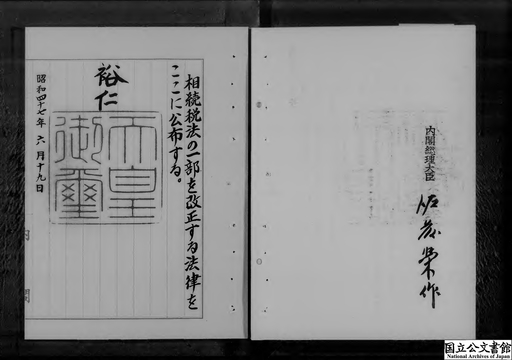 相続税法の一部を改正する法律を
ここに公布する。
裕仁
天皇
御璽
昭和四十七年 六月十九日
内閣総理大臣
佐藤榮作
国立公文書館
National Archives of Japan